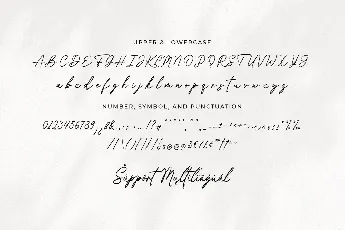 UPPER & LOWERCASE
ABCDEFGHIJKLMNOPQRSTUVWXYZ
abcdefghijklmnopqrstuvwxyz
NUMBER, SYMBOL, AND PUNCTUATION
0123456789
Support Multilingual